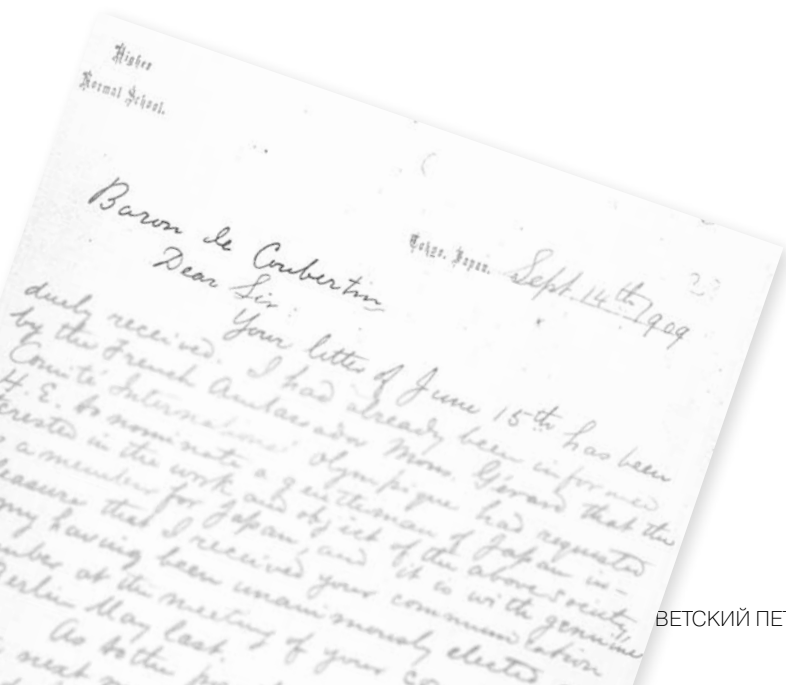 Higher
Normal School.
Tokyo. Japan. Sept. 14th 1909
Baron de Coubertin
Dear Sir:
Your letter of June 15th has been
duely received. I had already been informed
by the French Ambassador Mons. Gérard that the
Comité International Olympique had requested
H. E. to nominate a gentleman of Japan in-
terested in the work and object of the above society
a member for Japan, and it is with genuine
pleasure that I received your communication
my having been unanimously elected
at the meeting of your
Berlin May last.
As to the
next
ВЕТСКИЙ ПЕТ